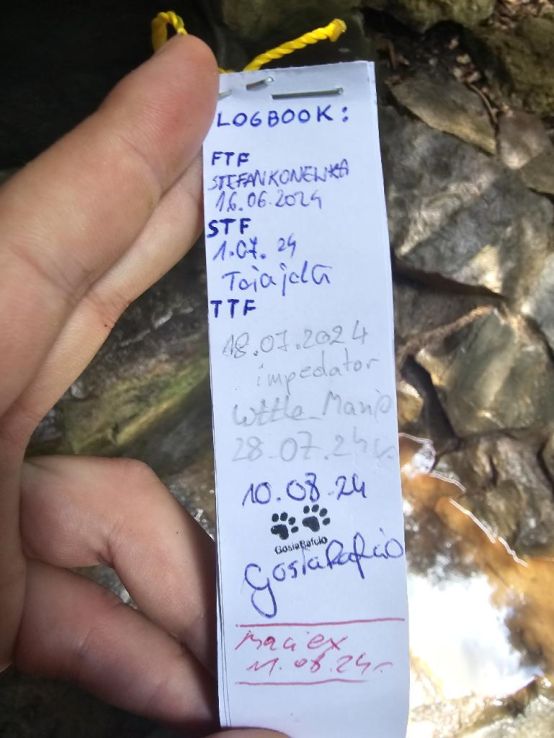 LOGBOOK:
FTF
STEFANKONEWKA
16.06.2024
STF
1.07.24
Tajajcta
TTF
18.07.2024
impedator
28.07.24r.
10.08.24
GosiaRafcio
GosiaRafcio
Maciex
11.08.24r.